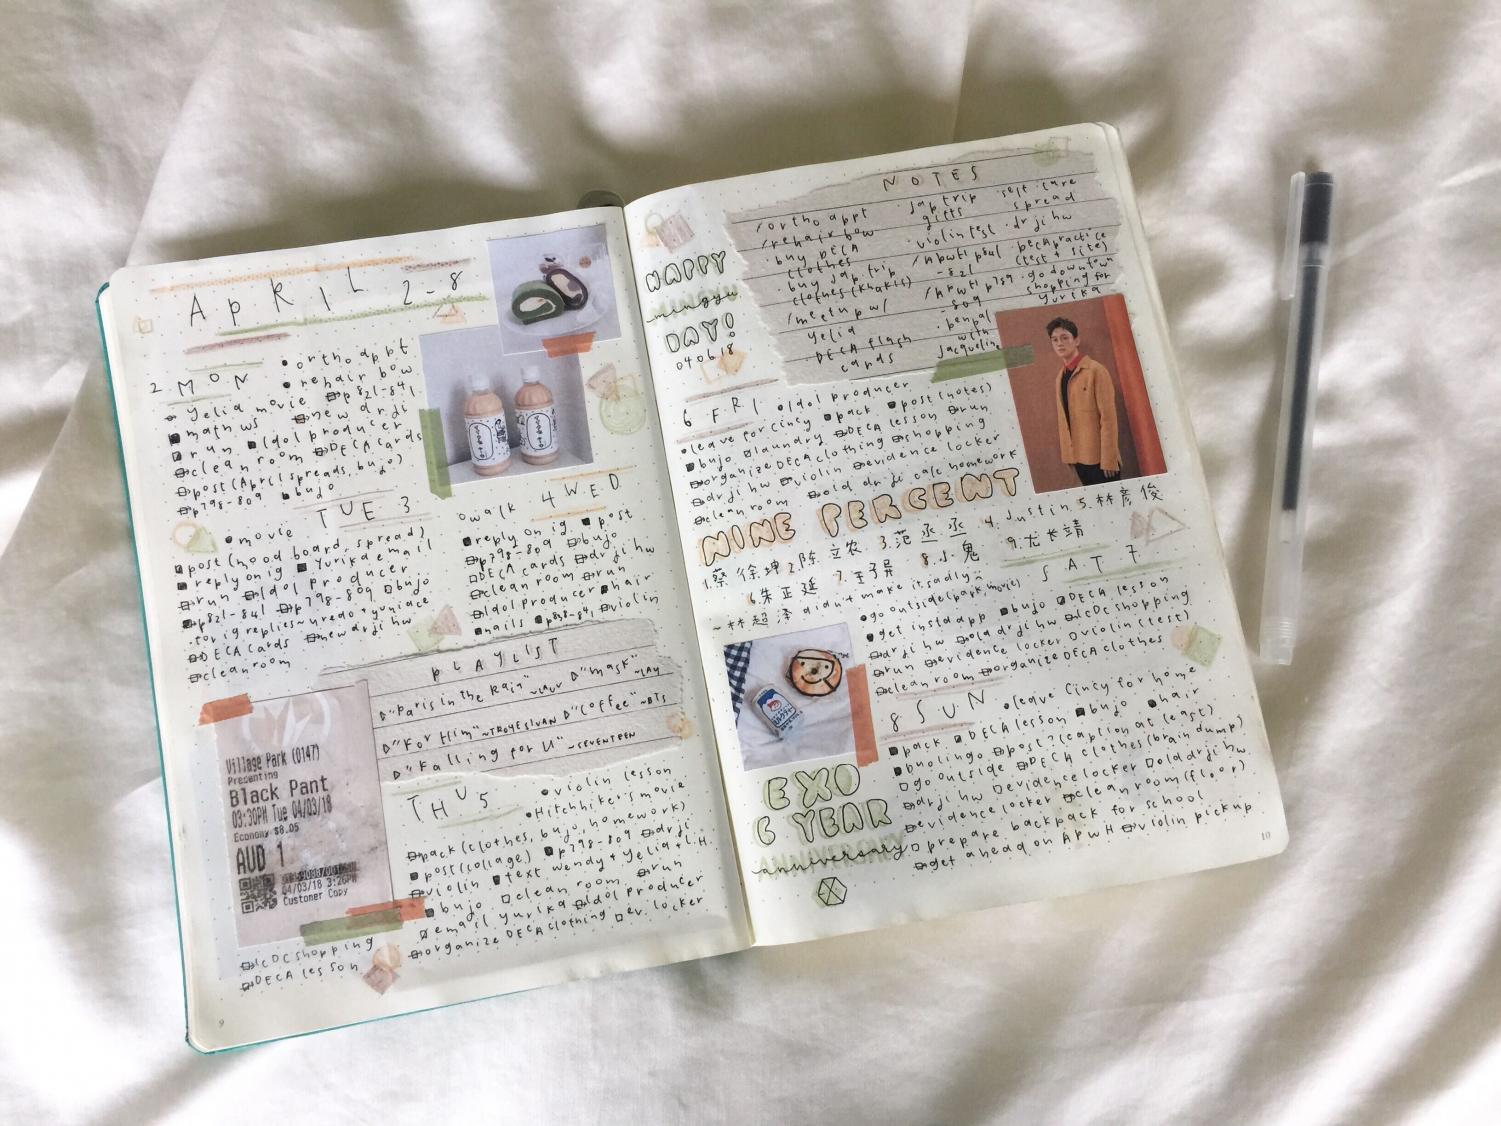 APRIL 2-8
2 MON
•ortho appt
•rehair bow
yelid movie p821-841
math ws new dr ji
run Idol producer
clean room DECA cards
post (April spreads, bujo)
p798-809 bujo
TUE 3
•movie
post (mood board, spread)
reply on ig Yurika email
run Idol producer
p821-841 p798-809 bujo
for ig replies~uredo + yuniace
DECA cards new dr ji hw
clean room
4 WED
walk
reply on ig post
p798-809 bujo
DECA cards dr ji hw
clean room run
Idol Producer hair
nails p898-841 violin
PLAYLIST
"Paris in the Rain" ~LAUV "Mask" ~LAY
"For Him" ~TROYE SIVAN "Coffee" ~BTS
"Falling for U" ~SEVENTEEN
Village Park (0147)
Presenting
Black Pant
03:30PM Tue 04/03/18
Economy $8.05
AUD 1
04/03/18 3:26PM
Customer Copy
ICDC shopping
DECA lesson
THU 5
•violin lesson
•Hitchhiker's movie
pack (clothes, bujo, homework)
post (collage) p798-809 dr ji
violin text wendy + yelid + L.H.
bujo clean room run
email yurika Idol producer
organize DECA clothing ev. locker
9
HAPPY
mingyu
DAY!
040618
NOTES
/ortho appt
/rehair bow
·buy DECA
clothes
·buy jap trip
clothes (khakis)
/meetup w/
yelid
·DECA flash
cards
·jap trip
gifts
·violin test
/hpwtl p821
-821
/hpwtl p789
-809
·penpal
with
Jacqueline
·self care
spread
·dr ji hw
·DECA practice
(test + site)
·go downtown
shopping for
Yurika
6 FRI
•Idol producer
•leave for cincy pack post (notes)
bujo laundry DECA lesson run
organize DECA clothing shopping
dr ji hw violin evidence locker
clean room old dr ji calc homework
NINE PERCENT
1.蔡徐坤 2.陈立农 3.范丞丞 4.Justin 5.林彦俊
6.朱正廷 7.王子异 8.小鬼 9.尤长靖
~林超泽 didn't make it sadly
SAT 7
•go outside (park, movie)
get instdapp bujo DECA lesson
dr ji hw old dr ji hw ICDC shopping
run evidence locker violin (test)
clean room organize DECA clothes
8 SUN
•leave Cincy for home
pack DECA lesson bujo hair
duolingo post? (caption at least)
go outside DECA clothes (brain dump)
dr ji hw evidence locker old dr ji hw
evidence locker clean room (floor)
prepare backpack for school
get ahead on APWH violin pickup
EXO
6 YEAR
ANNIVERSARY
anniversary
10